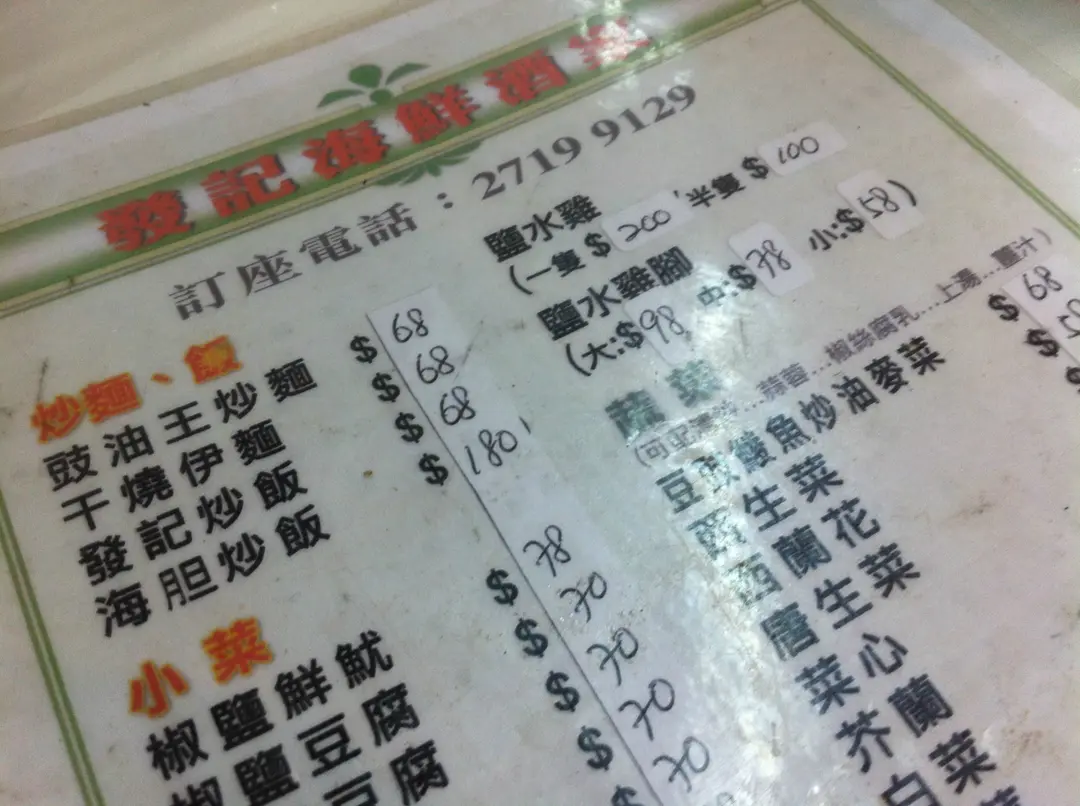 發記海鮮酒家
訂座電話：2719 9129
炒麵、飯
豉油王炒麵 $ 68
干燒伊麵 $ 68
發記炒飯 $ 68
海胆炒飯 $ 180
小菜
椒鹽鮮魷 $ 78
椒鹽豆腐 $ 70
豆腐 $ 70
$ 70
$ 70
鹽水雞
(一隻 $ 200 半隻 $ 100
鹽水雞腳
(大:$ 98 中:$ 78 小:$ 58)
蔬菜
(可配清炒...蒜蓉...椒絲腐乳...上湯...薑汁)
豆豉鯪魚炒油麥菜 $ 68
西生菜 $ 58
西蘭花 $
唐生菜
菜心
芥蘭
白菜